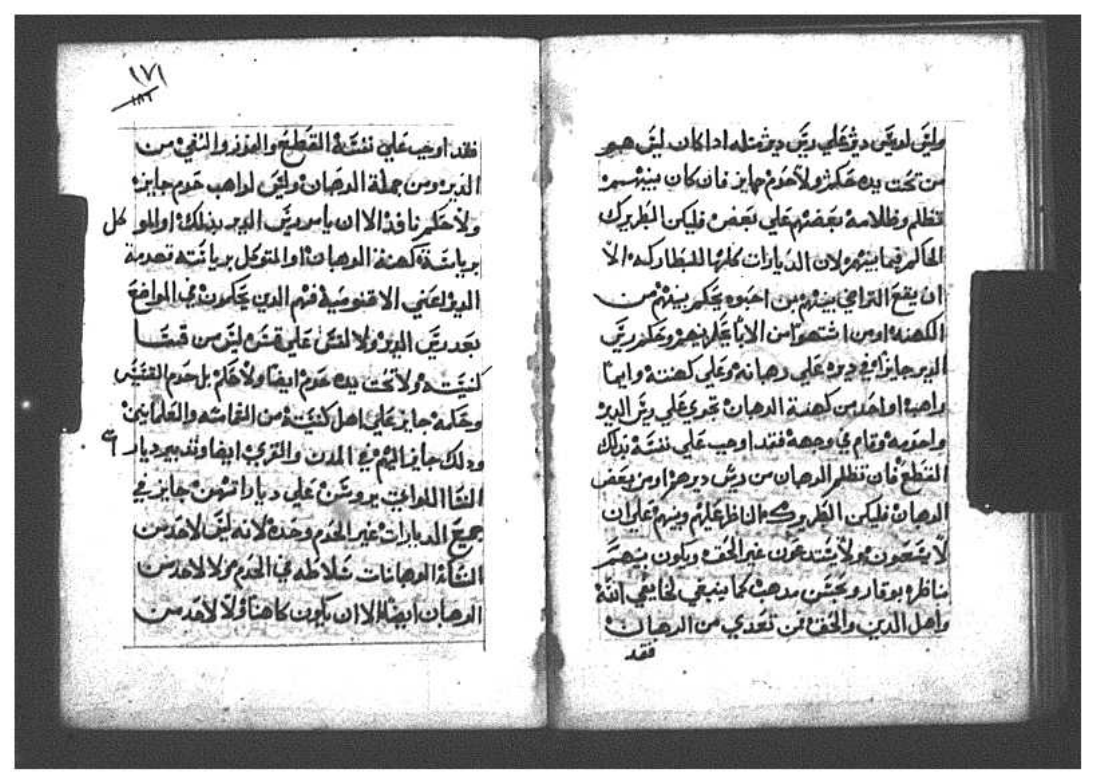 وليس لريس دير علي ريس دير مثله اذا كان ليس هم
من تحت يده حكم ولا حروم جايز فان كان بينهم
تظلم وظلامة بعضهم علي بعض فليكن البطريرك
الحاكم فيما بينهم لان الديارات كلها للبطاركه الا
ان يقع التراضي بينهم بمن احبوه يحكم بينهم من
الكهنه او من اشتهوا من الابا وحكم ريس
الدير جايز في ديره علي رهبانه وعلي كهنته وايما
راهب او احد من كهنة الرهبان تجري علي ريس الدير
واحرمه وقام في وجهه فقد اوجب علي نفسه بذلك
القطع فان تظلم الرهبان من ريس ديرهم او من بعض
الرهبان فليكن البطريرك الناظر عليهم وبينهم علي ان
لا يسعون ولا يستدعون غير الحق ويكون بينهم
مناظره بوقار وبحسن مذهب كما ينبغي لخايفي الله
واهل الدين والحق فمن تعدي من الرهبان
فقد
١٧١
١٨٦
فقد اوجب علي نفسه القطع والفرز والنفي من
الدير ومن جملة الرهبان وليس لراهب حروم جايزه
ولا حكم نافذ الا ان يامر ريس الدير بذلك او المو كل
برياسة كهنة الرهبان او المتوكل برياسته
الدير اعني الاقنوميه فهم الذين يحكمون في المواضع
بعد ريس الدير ولا لقس علي قس ليس من
كنيسته ولا تحت يده حروم ايضا ولا حكم بل حروم القسيس
وحكمه جايز علي اهل كنيسته من الشمامسه والعلمانيين
وذلك جايز لهم في المدن والقري ايضا وتدبير ديار ات
النسا اللواتي يروسن علي دياراتهن جايز في
جميع الديارات غير الحروم وحده لانه ليس لاحد من
النساء الرهبانات سلاطه في الحروم ولا لاحد من
الرهبان ايضا الا ان يكون كاهنا ولا لاحد من